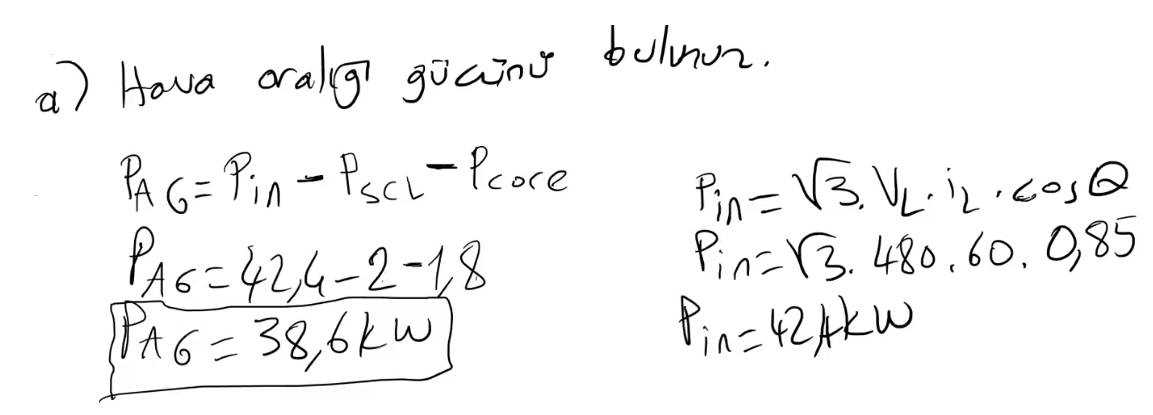 a) Hava aralığı gücünü bulunuz.
PAG = Pin - PSCL - Pcore
PAG = 42,4 - 2 - 1,8
PAG = 38,6 kW
Pin = √3 . VL . iL . cosθ
Pin = √3 . 480 . 60 . 0,85
Pin = 42,4 kW